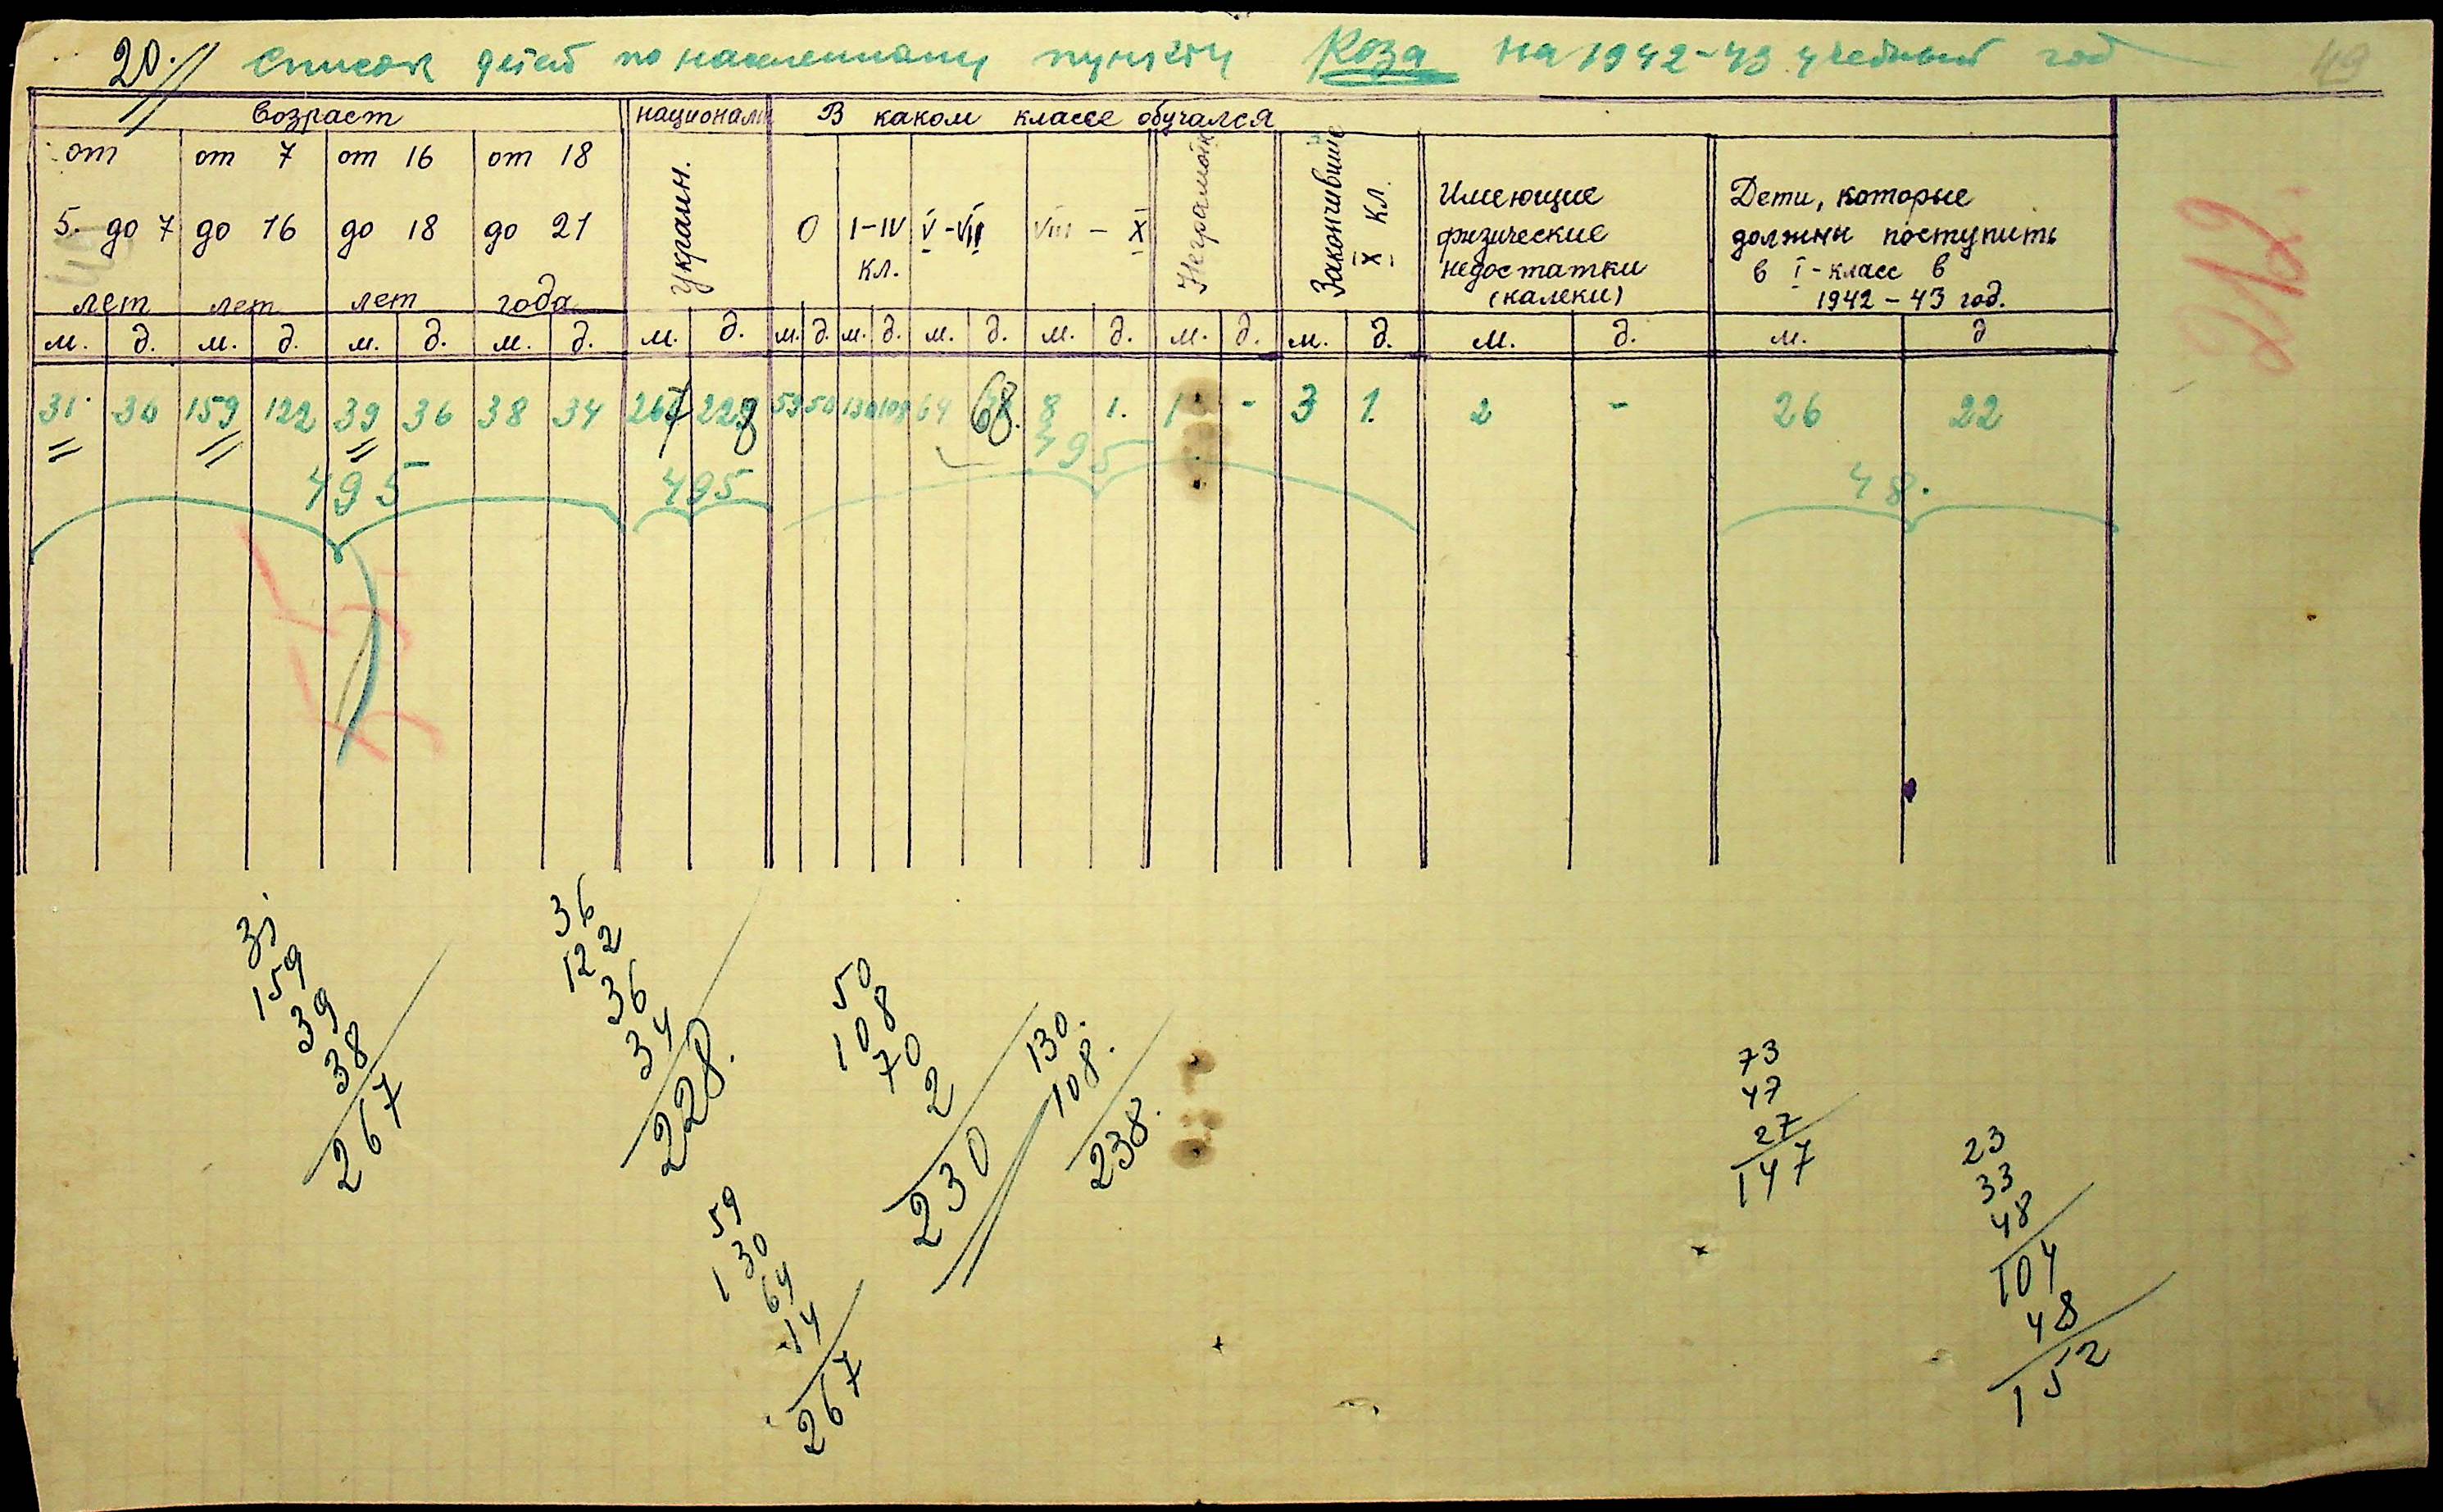 20. Список детей по населенному пункту Коза на 1942-43 учебный год
49
возраст
национал
В каком классе обучался
от
5. до 7
лет
от 7
до 16
лет
от 16
до 18
лет
от 18
до 21
года
украин.
0
I-IV
кл.
V-VII
VIII - X
Неграмотн
Закончивших
X кл.
Имеющие
физические
недостатки
(калеки)
Дети, которые
должны поступить
в I-класс в
1942-43 год.
м. д. м. д. м. д. м. д. м. д. м. д. м. д. м. д. м. д. м. д. м. д. м. д. м. д
31 36 159 122 39 36 38 34 267 228 59 50 130 108 64 68. 8 1. 1 - 3 1. 2 - 26 22
495
495
495
48.
31
159
39
38
267
36
122
36
34
228.
59
130
64
14
267
50
108
70
2
230
130.
108.
238.
73
47
27
147
23
33
48
104
48
152